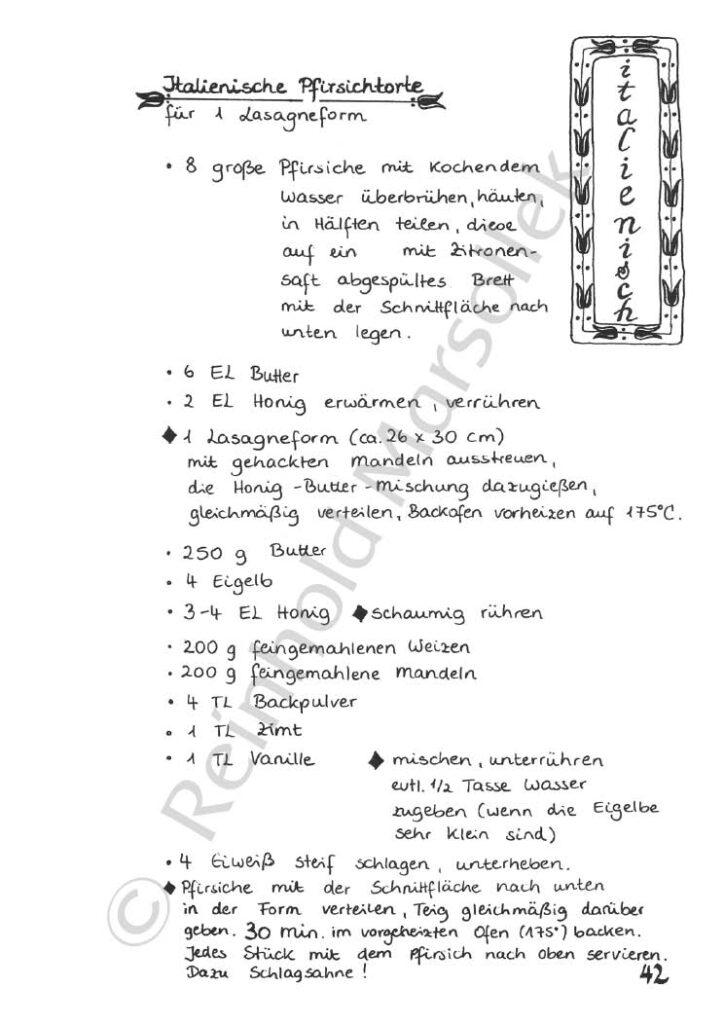 Italienische Pfirsichtorte
für 1 Lasagneform
italienisch
• 8 große Pfirsiche mit kochendem
Wasser überbrühen, häuten,
in Hälften teilen, diese
auf ein mit Zitronen-
saft abgespültes Brett
mit der Schnittfläche nach
unten legen.
• 6 EL Butter
• 2 EL Honig erwärmen, verrühren
◆ 1 Lasagneform (ca. 26 x 30 cm)
mit gehackten Mandeln ausstreuen,
die Honig-Butter-Mischung dazugießen,
gleichmäßig verteilen, Backofen vorheizen auf 175°C.
• 250 g Butter
• 4 Eigelb
• 3-4 EL Honig ◆ schaumig rühren
• 200 g feingemahlenen Weizen
• 200 g feingemahlene Mandeln
• 4 TL Backpulver
• 1 TL Zimt
• 1 TL Vanille ◆ mischen, unterrühren
evtl. 1/2 Tasse Wasser
zugeben (wenn die Eigelbe
sehr klein sind)
• 4 Eiweiß steif schlagen, unterheben.
◆ Pfirsiche mit der Schnittfläche nach unten
in der Form verteilen, Teig gleichmäßig darüber
geben. 30 min. im vorgeheizten Ofen (175°) backen.
Jedes Stück mit dem Pfirsich nach oben servieren.
Dazu Schlagsahne!
42
© Reinhold Marsollek